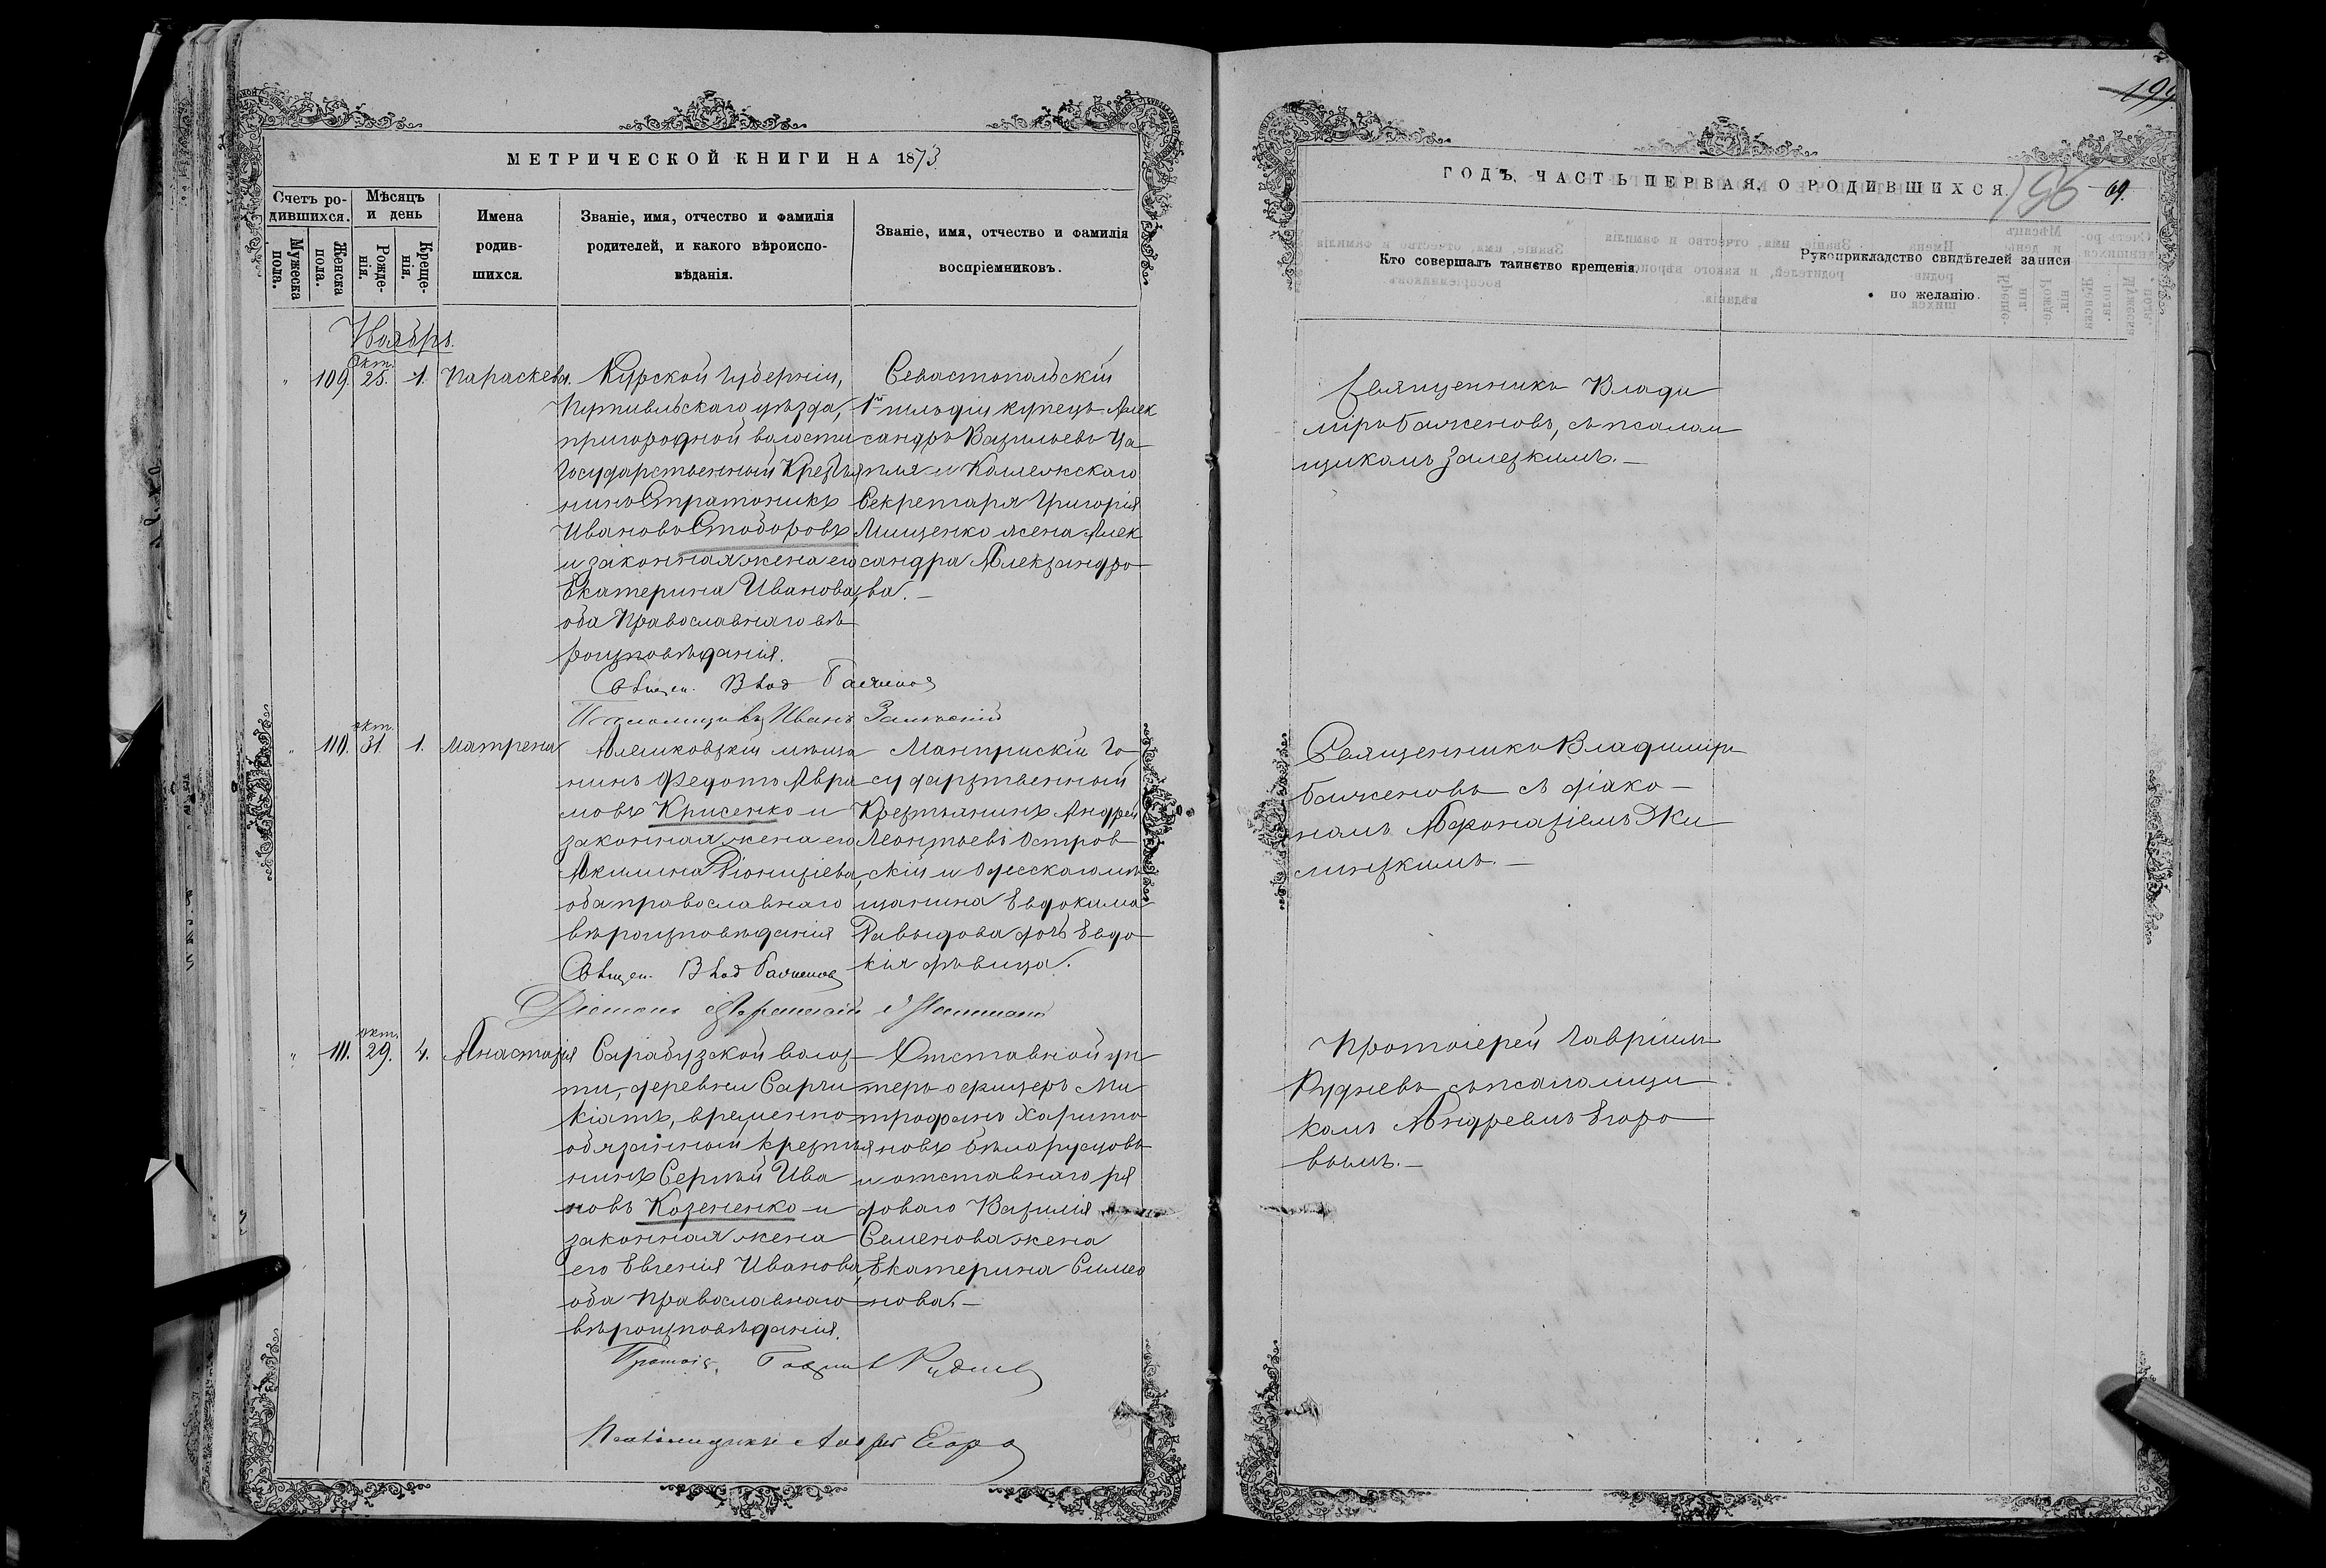 МЕТРИЧЕСКОЙ КНИГИ НА 1873
Счетъ ро-
дившихся.
Мужеска
пола.
Женска
пола.
Мѣсяцъ
и день
Рожде-
нія.
Креще-
нія.
Имена
родив-
шихся.
Званіе, имя, отчество и фамилія
родителей, и какого вѣроиспо-
вѣданія.
Званіе, имя, отчество и фамилія
воспріемниковъ.
Ноябрь.
109. Окт. 25. 1. Параскева.
Курской губерніи,
Путивльскаго уѣзда,
пригородной волости
Государственный Крестья
нинъ Стратоникъ
Ивановъ Стодоровъ
и законная жена его
Екатерина Иванова,
оба Православнаго вѣ
роисповѣданія.
Севастопольскій
1й гильдіи купецъ Алек
сандръ Васильевъ Ца
пля и Коллежскаго
Секретаря Григорія
Мищенко жена Алек
сандра Александро
ва.—
Псаломщикъ Иванъ Залѣскій
110. окт. 31. 1. Матрена
Алешковскій мѣща
нинъ Федотъ Авра
мовъ Крисенко и
законная жена его
Акилина Діонисіева,
оба православнаго
вѣроисповѣданія
Го
сударственный
Крестьянинъ Андрей
Леонтьевъ Остров
скій и Одесскаго мѣ
щанина Евдокима
Давыдова дочь Евдо
кія дѣвица.
111. окт. 29. 4. Анастасія
Сарабузской волос
ти, деревни Сарчи
кіятъ, временно
обязанный крестья
нинъ Сергѣй Ива
новъ Козененко и
законная жена
его Евгенія Иванова,
оба Православнаго
вѣроисповѣданія.
Отставной ун
теръ офицеръ Ми
трофанъ Харито
новъ Бѣлорусцовъ
и отставнаго ря
доваго Василія
Семенова жена
Екатерина Симео
нова.—
Протоіе. Гавріилъ Рудневъ
Псаломщикъ Андрей Егоро
199.
ГОДЪ, ЧАСТЬ ПЕРВАЯ, О РОДИВШИХСЯ.
196
69.
Кто совершалъ таинство крещенія.
Рукоприкладство свидѣтелей записи
по желанію.
Священникъ Влади
міръ Баженовъ, съ псалом
щикомъ Залезкимъ.—
Священникъ Владиміръ
Баженовъ съ діако—
номъ Афонасіемъ Жи
—
Протоіерей Гавріилъ
Рудневъ съ псаломщи
комъ Андреемъ Егоро
вымъ.—